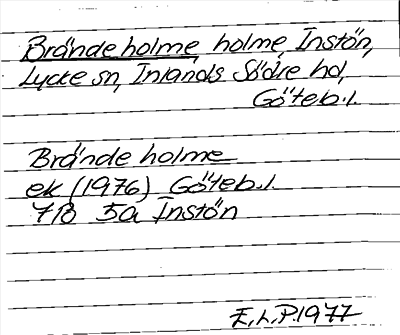 Brändeholme, holme, Instön,
Lycke sn, Inlands Södre hd,
Göteb. l.
Brände holme
ek (1976) Göteb. l.
7B 5a Instön
E. L. P. 1977